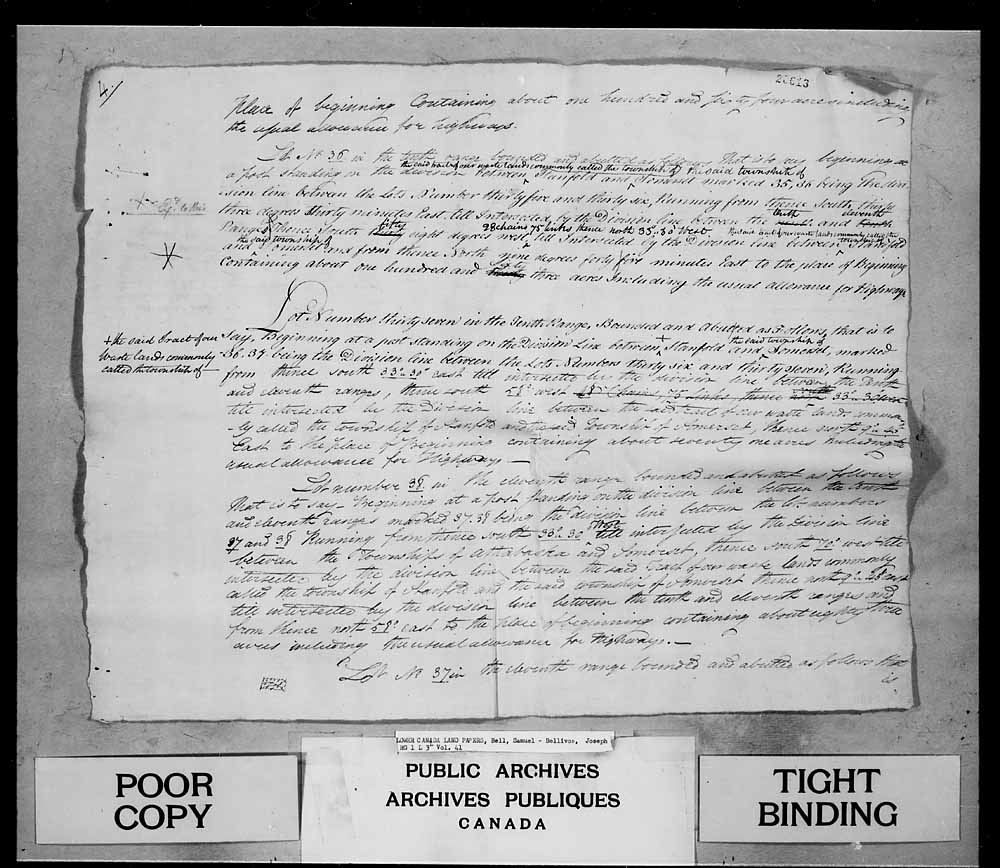 4/
20613
Place of beginning Containing about one hundred and sixty four acres including
the usual allowance for highways.
Lot No 36 in the tenth range bounded and abutted as follows That is to say beginning at
the said tract of our waste lands commonly called the township of the said township of
a post standing in the division between Stanfold and Somerset marked 35, 36 being the divi-
sion line between the Lots Number thirty five and thirty six, Running from thence South, thirty
three degrees thirty minutes East, till Intersected by the Division line between the tenth and eleventh
Range, Thence South fifty eight degrees west 28 chains 75 links thence north 33°.30 West till Intersected by the Division line between Stanfold
the said tract of our waste lands commonly called the township of
the said township of
and Somerset and from thence North nine degrees forty five minutes East to the place of Beginning
Containing about one hundred and sixty three acres Including the usual allowance for Highways
Lot Number thirty seven in the Tenth Range, Bounded and Abutted as Follows, that is to
Say, Beginning at a post standing on the Division Line between + Stanfold and the said township of Somerset, marked
+ the said Tract of our
waste lands commonly
called the township of
36. 37 being the Division line between the Lots Numbers thirty six and thirty seven, Running
from thence south 33°.30' east till intersected by the division line between the Tenth
and eleventh ranges, thence south 58° west 28 Chains, 75 links, thence north 33°.30 west
till intersected by the Division line between the said tract of our waste lands common-
-ly called the township of Stanfold and the said Township of Somerset, thence north 9°.45'
East to the place of beginning containing about seventy one acres including the
usual allowance for Highways —
Lot number 38 in the eleventh range bounded and abutted as follows
That is to say – Beginning at a post standing on the division line between the tenth
and eleventh ranges marked 37.38 being the division line between the Lots numbers
37 and 38 Running from thence south 33°.30' East till intersected by the Division line
between the Townships of Arthabaska and Somerset, thence south 76° west till
intersected by the division line between the said tract of our waste lands commonly
called the township of Stanfold and the said township of Somerset thence north 9°.45' east
till intersected by the division line between the tenth and eleventh ranges and
from thence north 58° east to the place of beginning containing about eighty three
acres including the usual allowance for Highways. —
Lot No 37 in the eleventh range bounded and abutted as follows that
is
LOWER CANADA LAND PAPERS, Bell, Samuel - Bellivos, Joseph
RG 1 L 3" Vol. 41
POOR
COPY
PUBLIC ARCHIVES
ARCHIVES PUBLIQUES
CANADA
TIGHT
BINDING